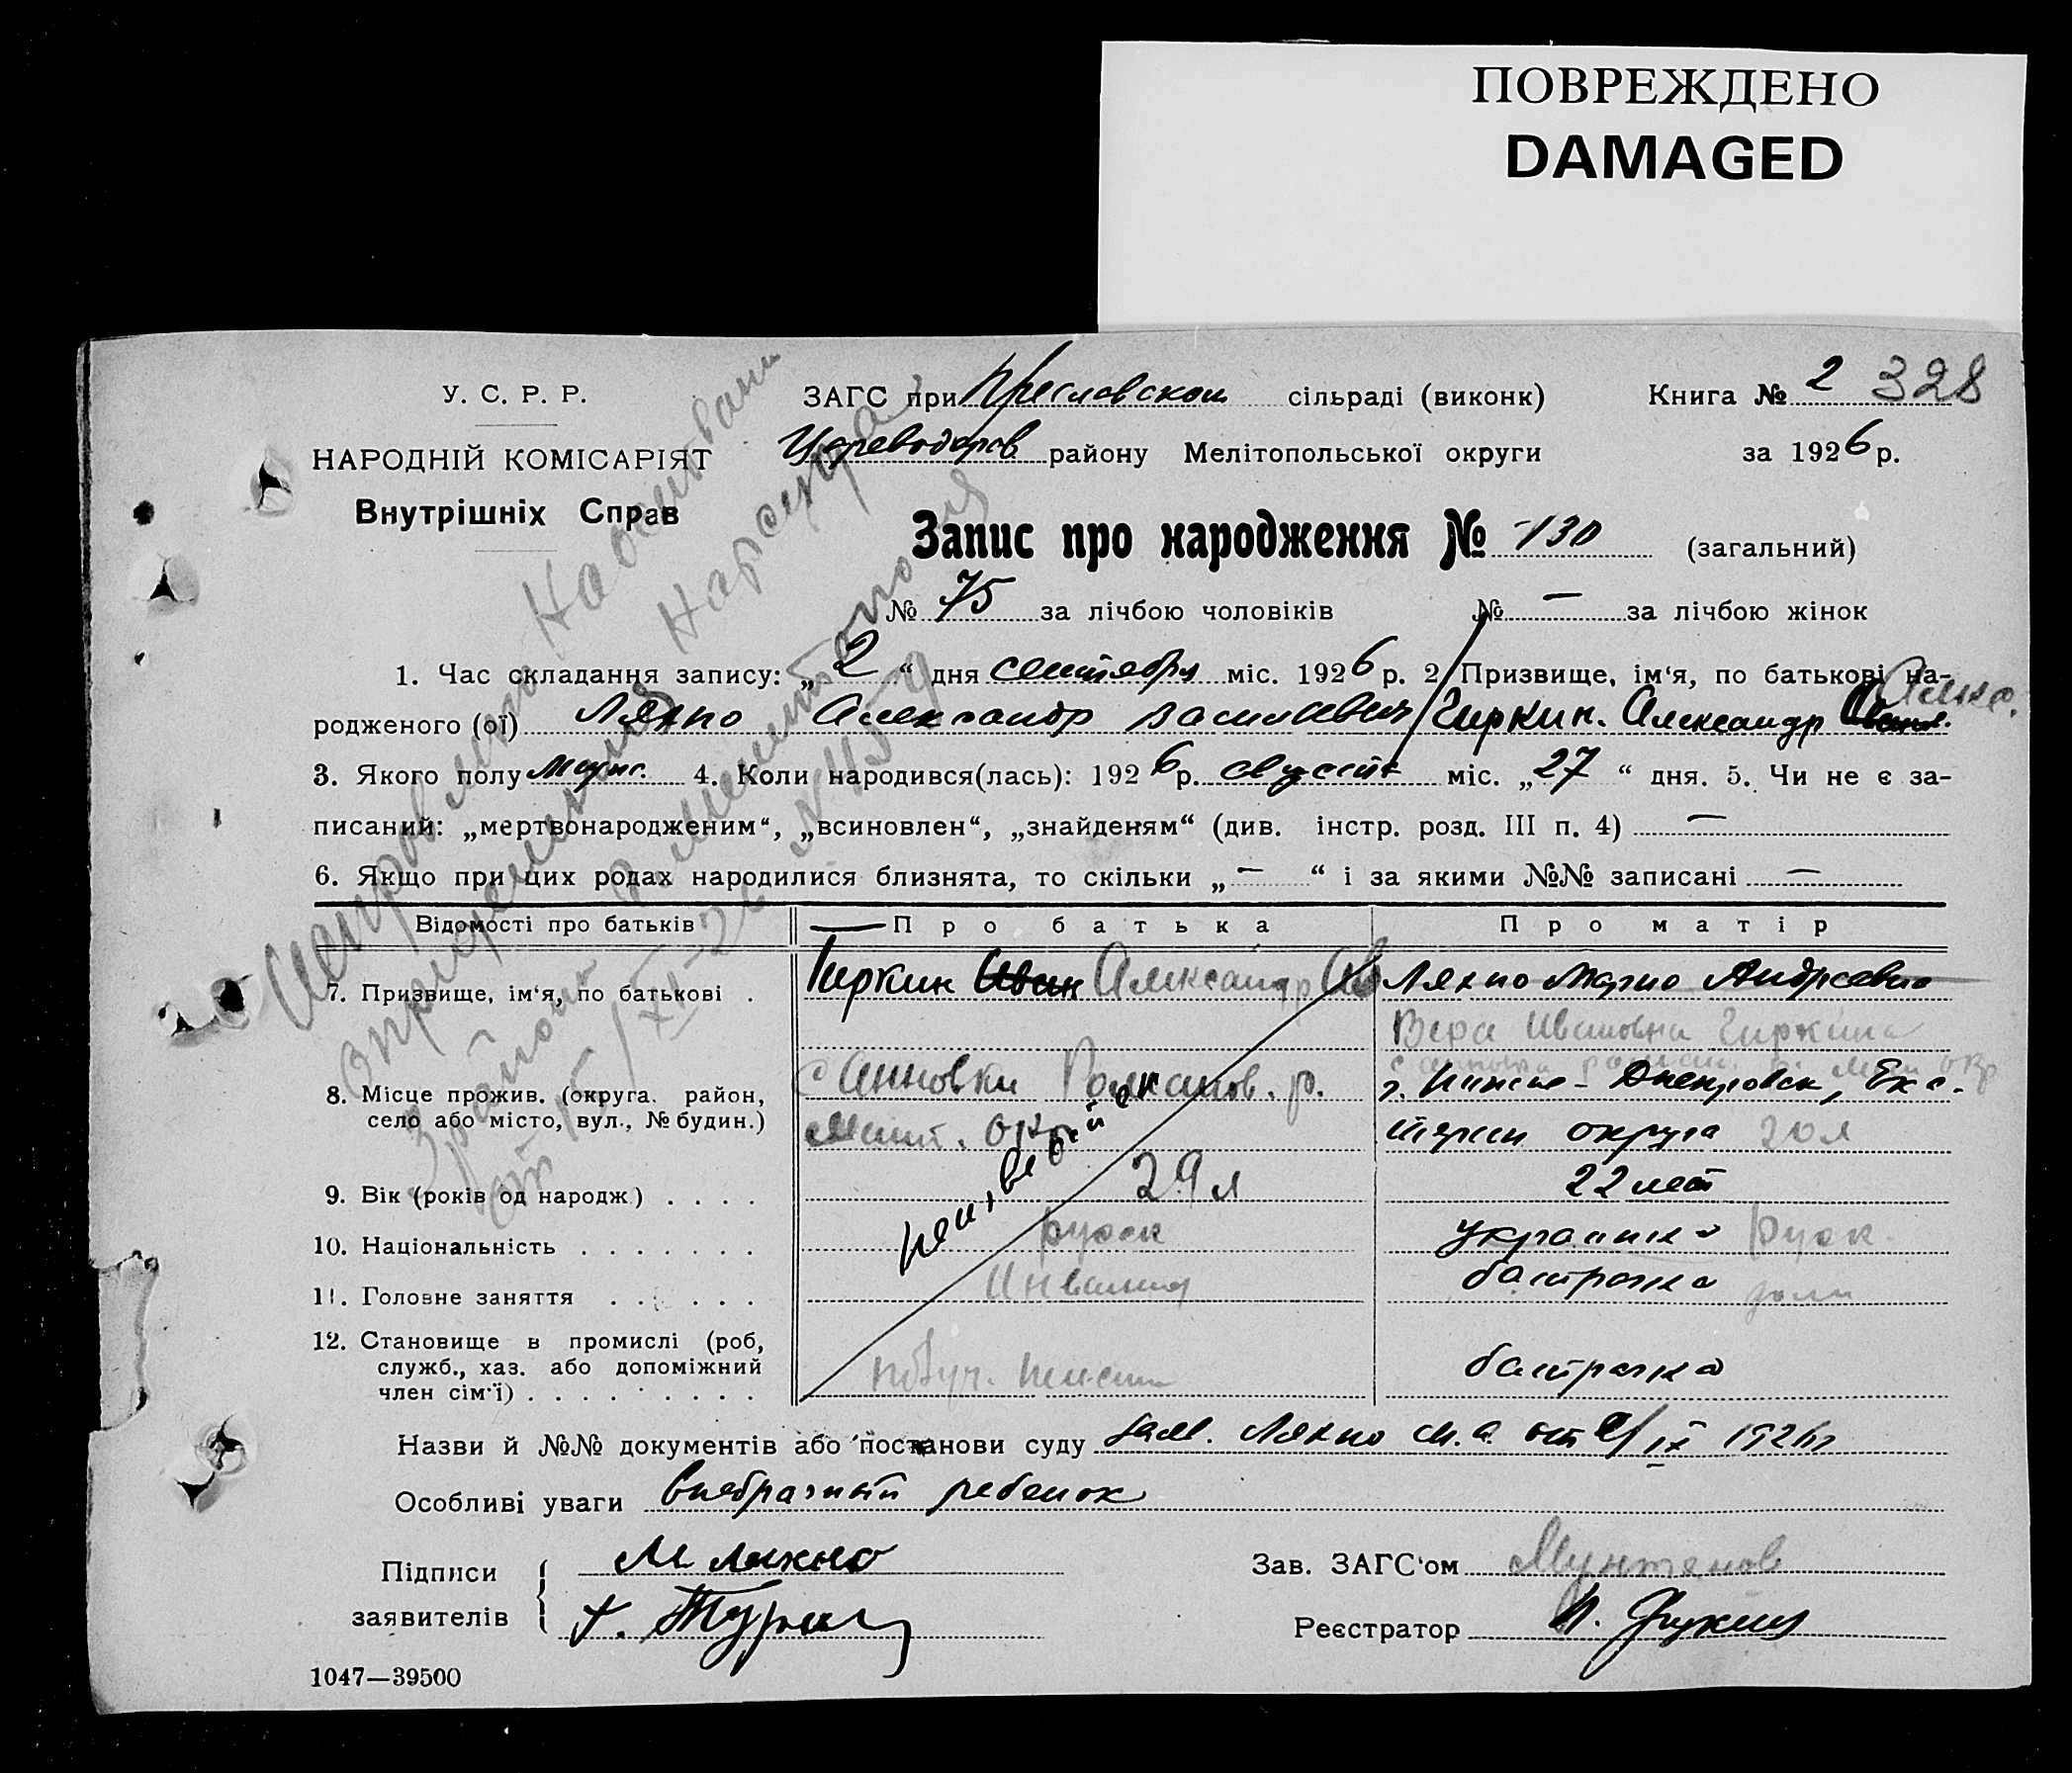 ПОВРЕЖДЕНО
DAMAGED
У. С. Р. Р.
НАРОДНІЙ КОМІСАРІЯТ
Внутрішніх Справ
ЗАГС при Преславском сільраді (виконк)
Книга № 2 328
району Мелітопольської округи
за 1926 р.
Запис про народження № 130 (загальний)
№ 75 за лічбою чоловіків № — за лічбою жінок
1. Час складання запису: „2“ дня сентября міс. 1926 р. 2. Призвище, ім‘я, по батькові на-
родженого (ої) Ляхно Александр Василевич / Гиркин. Александр Алекс.
3. Якого полу Мужс. 4. Коли народився(лась): 1926 р. августа міс. „27“ дня. 5. Чи не є за-
писаний: „мертвонародженим“, „всиновлен“, „знайденям“ (див. інстр. розд. III п. 4) —
6. Якщо при цих родах народилися близнята, то скільки „—“ і за якими №№ записані —
Відомості про батьків
Про батька
Про матір
7. Призвище, ім‘я, по батькові .
Гиркин Иван Александр Ив
Ляхно Мария Андреевна
Вера Ивановна Гиркина
8. Місце прожив. (округа, район,
село або місто, вул., № будин.)
с Анновки р.
Мелит. окр
г. Нижне-Днепровск, Ека-
терин округа 20 л
9. Вік (років од народж) . . . .
29 л
22 лет
10. Національність . . . . . . .
русск
украинка руск.
11. Головне заняття . . . . . .
Инвалид
батрачка
12. Становище в промислі (роб,
служб., хаз. або допоміжний
член сім‘ї) . . . . . . . . .
батрачка
Назви й №№ документів або постанови суду заяв. Ляхно М.А. от 2/IX 1926 г
Особливі уваги Внебрачный ребенок
Підписи
заявителів
М Ляхно
Зав. ЗАГС‘ом
Реєстратор
1047—39500
Исправлено На основании
определения Нарсуда
3 района г. Мелитополя
от 15/XII-26 N 1159